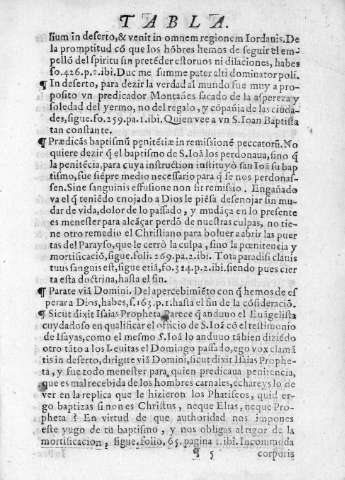 TABLA.
sium in deserto, & venit in omnem regionem Iordanis. De
la promptitud cõ que los hõbres hemos de seguir el em
pellõ del spiritu sin pretẽder estoruos ni dilaciones, habes
fo. 426. p. 2. ibi. Duc me summe pater alti dominator poli.
¶ In deserto, para dezir la verdad al mundo fue muy a pro
posito vn predicador Montañes sacado de la aspereza y
soledad del yermo, no del regalo, y cõpañia de las ciuda-
des, sigue. fo. 259. pa. 1. ibi. Quien vee a vn S. Ioan Baptista
tan constante.
¶ Prædicãs baptismũ penitẽtiæ in remissionẽ peccatorũ. No
quiere dezir q̃ el baptismo de S. Ioã los perdonaua, sino q̃
la penitẽcia, para cuya instruction instituyò san Ioã su bap
tismo, fue siẽpre medio necessario para q̃ se nos perdonas-
sen. Sine sanguinis effusione non fit remissio. Engañado
va el q̃ teniẽdo enojado a Dios le piẽsa desenojar sin mu
dar de vida, dolor de lo passado, y mudãça en lo presente
es menester para alcãçar perdõ de nuestras culpas, no tie-
ne otro remedio el Christiano para boluer a abrir las puer
tas del Parayso, que le cerrò la culpa, sino la pœnitencia y
mortificació, sigue. foli. 269. pa. 2. ibi. Tota paradisi clauis
tuus sanguis est, sigue etiã, fo. 314. p. 2. ibi. siendo pues cier
ta esta doctrina, hasta el fin.
¶ Parate viã Domini. Del apercebimiẽto con q̃ hemos de es
perar a Dios, habes, f. 163. p. 1. hasta el fin de la cõsideració.
¶ Sicut dixit Isaias Propheta. Parece q̃ anduuo el Euãgelista
cuydadoso en qualificar el officio de S. Ioã cõ el testimonio
de Isayas, como el mesmo S. Ioã lo anduuo tãbien diziẽdo
otro tãto a los Leuitas el Domingo passado, ego vox clamã
tis in deserto, dirigite viã Domini, sicut dixit Isaias Prophe-
ta, y fue todo menester para, quien predicaua penitencia,
que es mal recebida de los hombres carnales, echareys lo de
ver en la replica que le hizieron los Phariseos, quid er-
go baptizas si non es Christus, neque Elias, neque Pro-
pheta? En virtud de que authoridad nos impones
este yugo de tu baptismo, y nos obligas al rigor de la
mortificacion, sigue. folio, 65. pagina 1. ibi. Incommoda
¶ 5 corporis